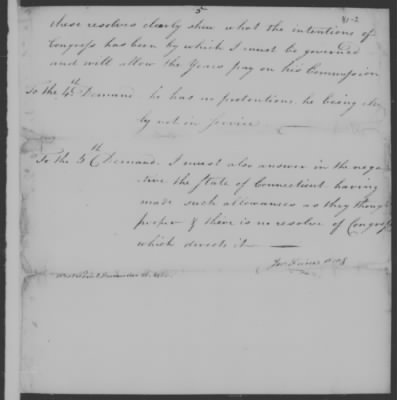 5
81-2
these resolves clearly shew what the intentions of
Congress has been by which I must be governed
and will allow the Years pay on his Commission
To the 4th Demand. he has no pretentions he being
by not in Service
To the 5th Demand. I must also answer in the nega
tive the State of Connecticut having
made such allowances as they though
proper & there is no resolve of Congress
which directs it